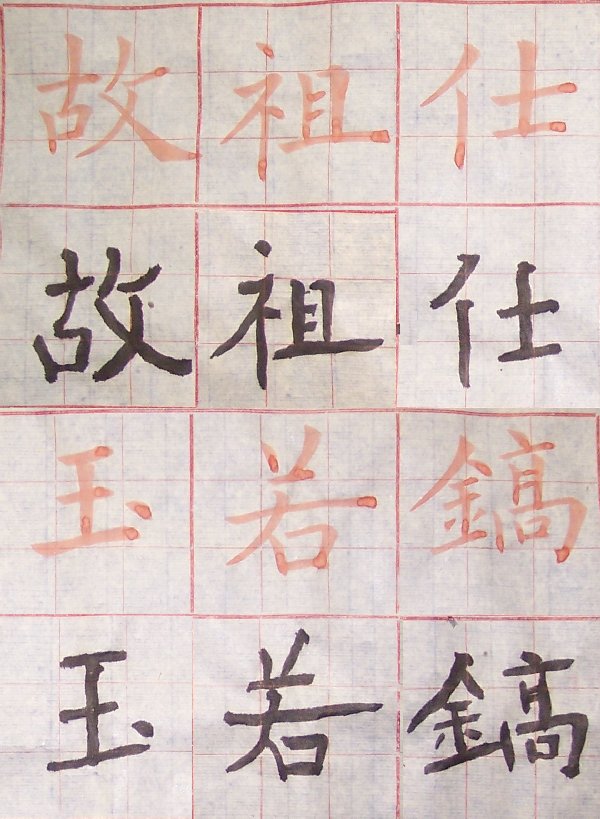 故祖仕
故祖仕
玉若鎬
玉若鎬